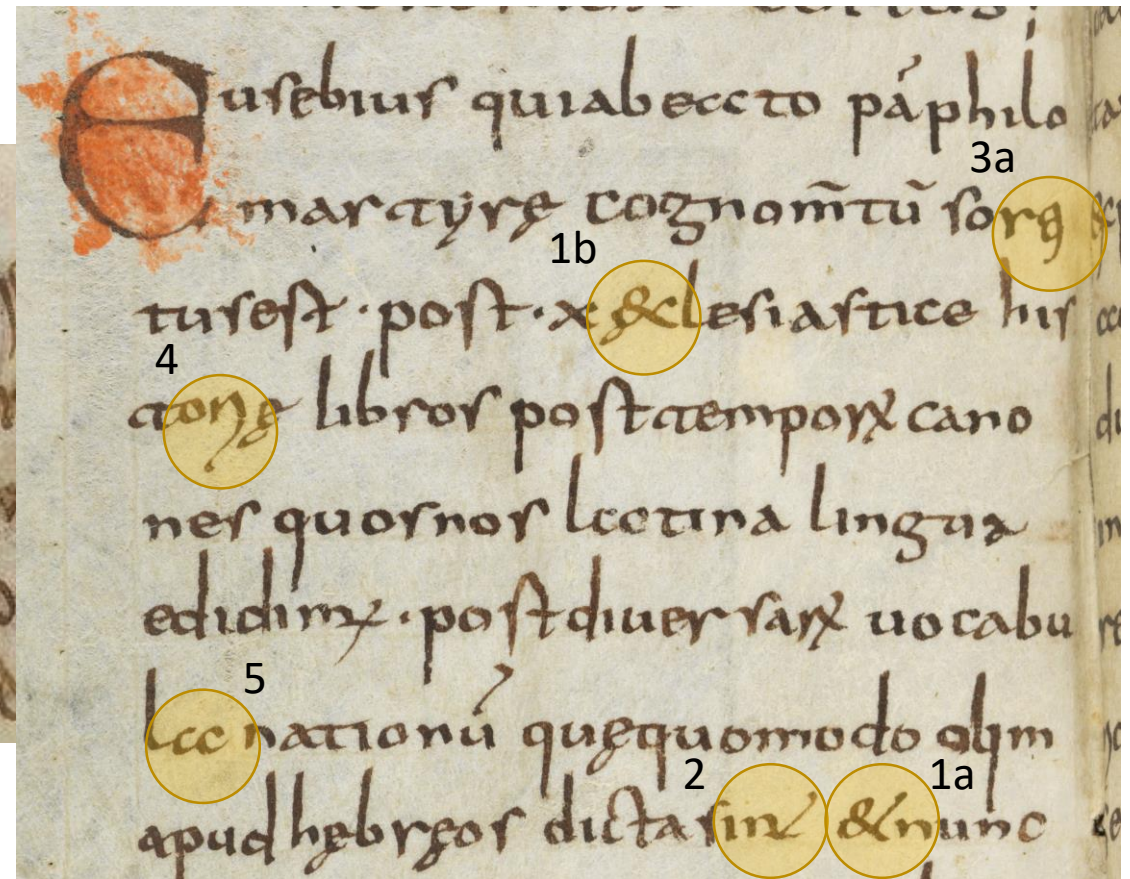 Eusebius quiabeato pāphilo
3a
martyrę cognom̄tū sortꝰ
1b
tusest · post · x &clesiastice his
4
torię libros post temporꝝ cano
nes quosnos latina lingua
edidimꝰ · post diuersarꝝ uocabu
5
la nationū quęquomodo olim
2 1a
apud hębręos dictasint &nunc